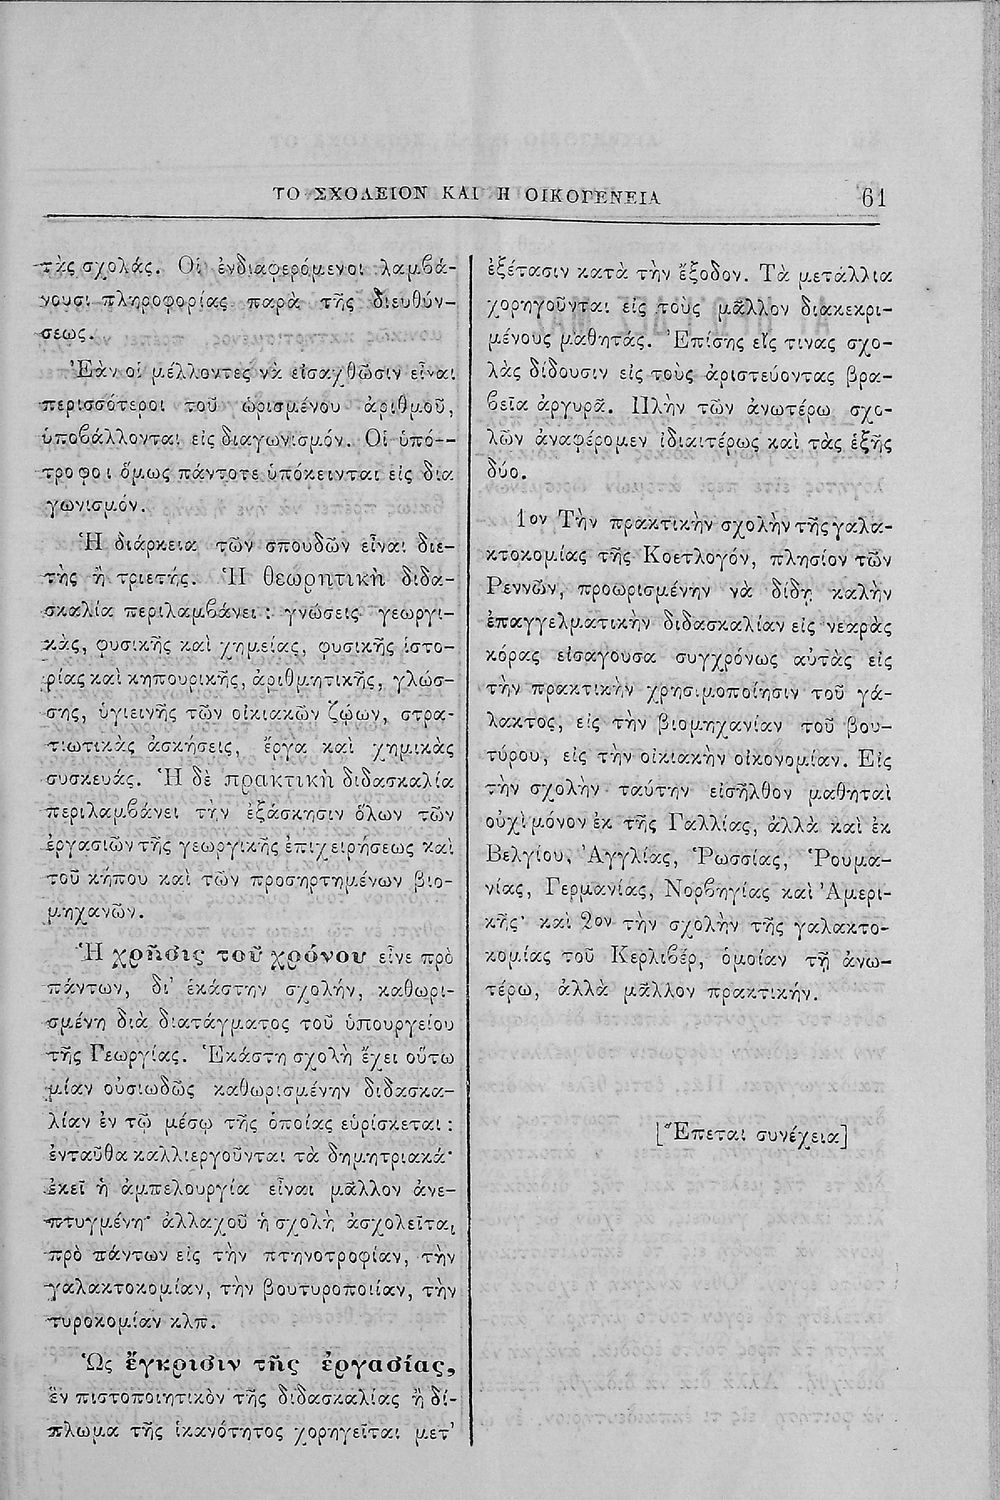 ΤΟ ΣΧΟΛΕΙΟΝ ΚΑΙ Η ΟΙΚΟΓΕΝΕΙΑ 61
τὰς σχολάς. Οἱ ἐνδιαφερόμενοι λαμβά-
νουσι πληροφορίας παρὰ τῆς διευθύν-
σεως.
Ἐὰν οἱ μέλλοντες νὰ εἰσαχθῶσιν εἶναι
περισσότεροι τοῦ ὡρισμένου ἀριθμοῦ,
ὑποβάλλονται εἰς διαγωνισμόν. Οἱ ὑπό-
τροφοι ὅμως πάντοτε ὑπόκεινται εἰς δια
γωνισμόν.
Ἡ διάρκεια τῶν σπουδῶν εἶναι διε-
τὴς ἢ τριετής. Ἡ θεωρητικὴ διδα-
σκαλία περιλαμβάνει : γνώσεις γεωργι-
κὰς, φυσικῆς καὶ χημείας, φυσικῆς ἱστο-
ρίας καὶ κηπουρικῆς, ἀριθμητικῆς, γλώσ-
σης, ὑγιεινῆς τῶν οἰκιακῶν ζῴων, στρα-
τιωτικὰς ἀσκήσεις, ἔργα καὶ χημικὰς
συσκευάς. Ἡ δὲ πρακτικὴ διδασκαλία
περιλαμβάνει τὴν ἐξάσκησιν ὅλων τῶν
ἐργασιῶν τῆς γεωργικῆς ἐπιχειρήσεως καὶ
τοῦ κήπου καὶ τῶν προσηρτημένων βιο-
μηχανῶν.
Ἡ χρῆσις τοῦ χρόνου εἶνε πρὸ
πάντων, δι' ἑκάστην σχολήν, καθωρι-
σμένη διὰ διατάγματος τοῦ ὑπουργείου
τῆς Γεωργίας. Ἑκάστη σχολὴ ἔχει οὕτω
μίαν οὐσιωδῶς καθωρισμένην διδασκα-
λίαν ἐν τῷ μέσῳ τῆς ὁποίας εὑρίσκεται :
ἐνταῦθα καλλιεργοῦνται τὰ δημητριακά·
ἐκεῖ ἡ ἀμπελουργία εἶναι μᾶλλον ἀνε-
πτυγμένη· ἀλλαχοῦ ἡ σχολὴ ἀσχολεῖται
πρὸ πάντων εἰς τὴν πτηνοτροφίαν, τὴν
γαλακτοκομίαν, τὴν βουτυροποιίαν, τὴν
τυροκομίαν κλπ.
Ὡς ἔγκρισιν τῆς ἐργασίας,
ἓν πιστοποιητικὸν τῆς διδασκαλίας ἢ δί-
πλωμα τῆς ἱκανότητος χορηγεῖται μετ'
ἐξέτασιν κατὰ τὴν ἔξοδον. Τὰ μετάλλια
χορηγοῦνται εἰς τοὺς μᾶλλον διακεκρι-
μένους μαθητάς. Ἐπίσης εἴς τινας σχο-
λὰς δίδουσιν εἰς τοὺς ἀριστεύοντας βρα-
βεῖα ἀργυρᾶ. Πλὴν τῶν ἀνωτέρω σχο-
λῶν ἀναφέρομεν ἰδιαιτέρως καὶ τὰς ἑξῆς
δύο.
1ον Τὴν πρακτικὴν σχολὴν τῆς γαλα-
κτοκομίας τῆς Κοετλογόν, πλησίον τῶν
Ρεννῶν, προωρισμένην νὰ δίδῃ καλὴν
ἐπαγγελματικὴν διδασκαλίαν εἰς νεαρὰς
κόρας εἰσαγουσα συγχρόνως αὐτὰς εἰς
τὴν πρακτικὴν χρησιμοποίησιν τοῦ γά-
λακτος, εἰς τὴν βιομηχανίαν τοῦ βου-
τύρου, εἰς τὴν οἰκιακὴν οἰκονομίαν. Εἰς
τὴν σχολὴν ταύτην εἰσῆλθον μαθηταὶ
οὐχὶ μόνον ἐκ τῆς Γαλλίας, ἀλλὰ καὶ ἐκ
Βελγίου, Ἀγγλίας, Ῥωσσίας, Ῥουμα-
νίας, Γερμανίας, Νορβηγίας καὶ Ἀμερι-
κῆς· καὶ 2ον τὴν σχολὴν τῆς γαλακτο-
κομίας τοῦ Κερλιβέρ, ὁμοίαν τῇ ἀνω-
τέρω, ἀλλὰ μᾶλλον πρακτικήν.
[Ἕπεται συνέχεια]